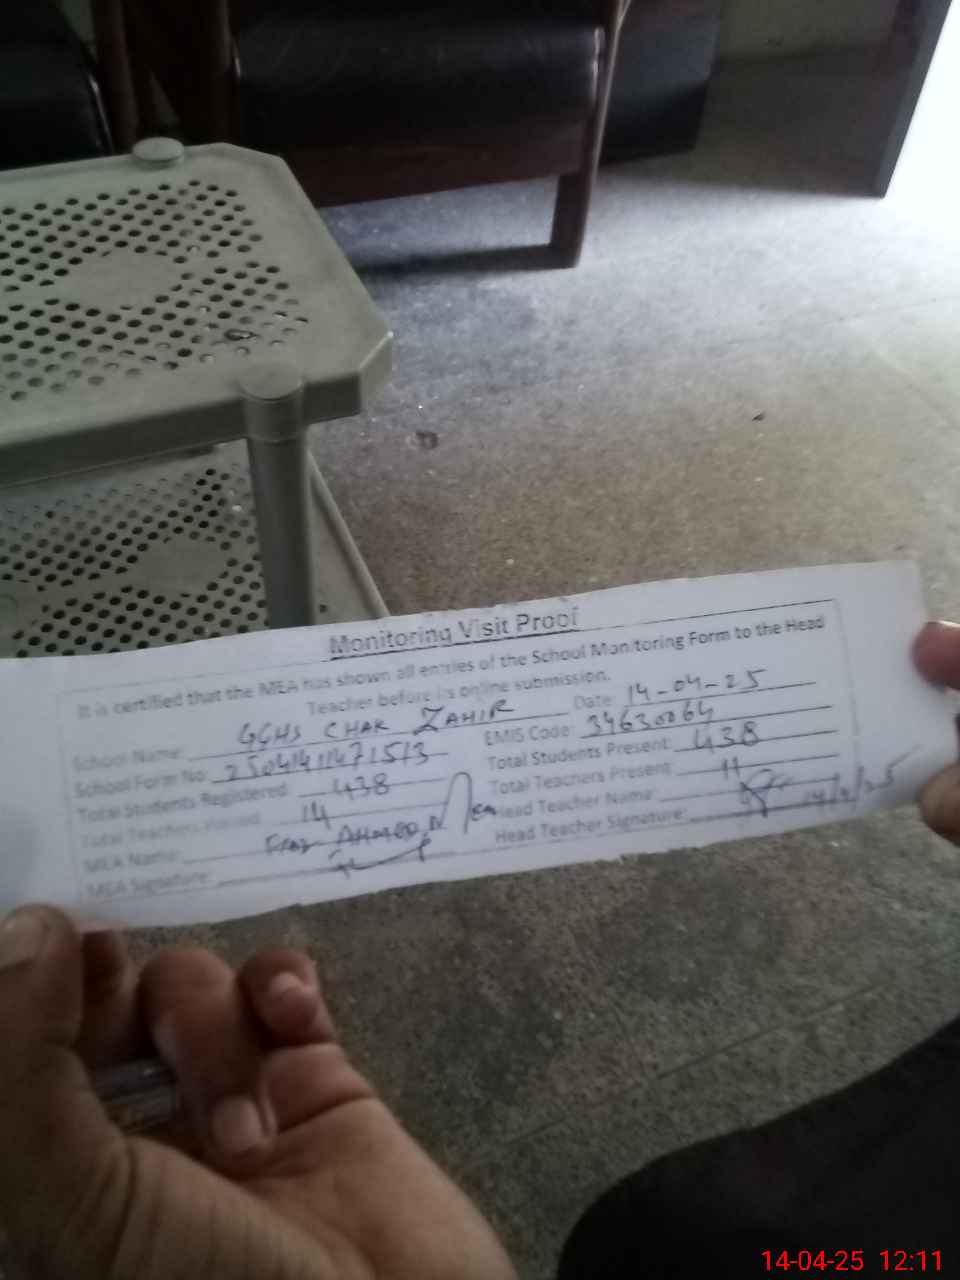 Monitoring Visit Proof
It is certified that the MEA has shown all entries of the School Monitoring Form to the Head
Teacher before its online submission.
School Name: GGHS CHAK ZAHIR Date: 14-04-25
School Form No: EMIS Code: 34630064
Total Students Registered: 438 Total Students Present: 438
Total Teachers 14 Total Teachers Present: 11
MEA Name: AHMED Head Teacher Name:
MEA Signature: Head Teacher Signature:
14-04-25 12:11